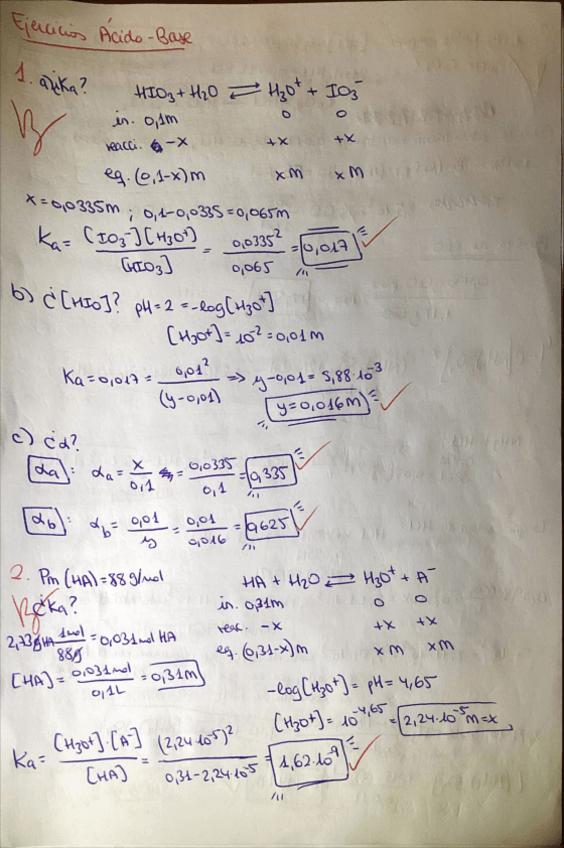 Ejercicios Ácido-Base
1. a) ¿Ka? HIO3 + H2O ⇌ H3O+ + IO3-
in. 0,1M 0 0
reacci. -x +x +x
eq. (0,1-x)M xM xM
x = 0,0335M ; 0,1-0,0335 = 0,065M
Ka = [IO3-][H3O+] / [HIO3] = 0,0335² / 0,065 = 0,017
b) ¿[HIO]? pH = 2 = -log[H3O+]
[H3O+] = 10^-2 = 0,01M
Ka = 0,017 = 0,01² / (y-0,01) ⇒ y-0,01 = 5,88·10^-3
y = 0,016M
c) ¿α?
αa : αa = x / 0,1 = 0,0335 / 0,1 = 0,335
αb : αb = 0,01 / y = 0,01 / 0,016 = 0,625
2. Pm (HA) = 88 g/mol HA + H2O ⇌ H3O+ + A-
¿Ka? in. 0,31M 0 0
reac. -x +x +x
2,73g HA 1mol / 88g = 0,031 mol HA
eq. (0,31-x)M xM xM
[HA] = 0,031mol / 0,1L = 0,31M
-log[H3O+] = pH = 4,65
[H3O+] = 10^-4,65 = 2,24·10^-5 M = x
Ka = [H3O+]·[A-] / [HA] = (2,24·10^-5)² / 0,31-2,24·10^-5 = 1,62·10^-9